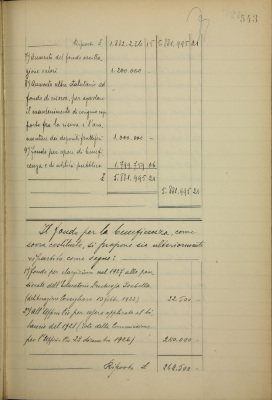 543
Riporto £ 1.882.236 15 5.881.995 21
7) Aumento del fondo oscilla-
zione valori 1.200.000 -
8) Aumento oltre statutario al
fondo di riserva, per agevolare
il mantenimento di congruo rap-
porto fra la riserva e l'am-
montare dei depositi fruttiferi 1.000.000 -
9) Fondo per opere di benefi-
cenza e di utilità pubblica 1.799.759 06
£ 5.881.995 21
5.881.995 21
Il fondo per la beneficenza, come
sovra costituito, si propone sia ulteriormente
ripartito come segue:
1) fondo per elargizioni nel 1927 alle
dell'
(deliberazione Consigliare 1922) 22.500 -
2) all'Ufficio Pio per opere applicate al bi-
lancio del 1928 (Voto della Commissione
per l'Ufficio Pio 28 dicembre 1926) 240.000 -
Riporto £. 262.500 -